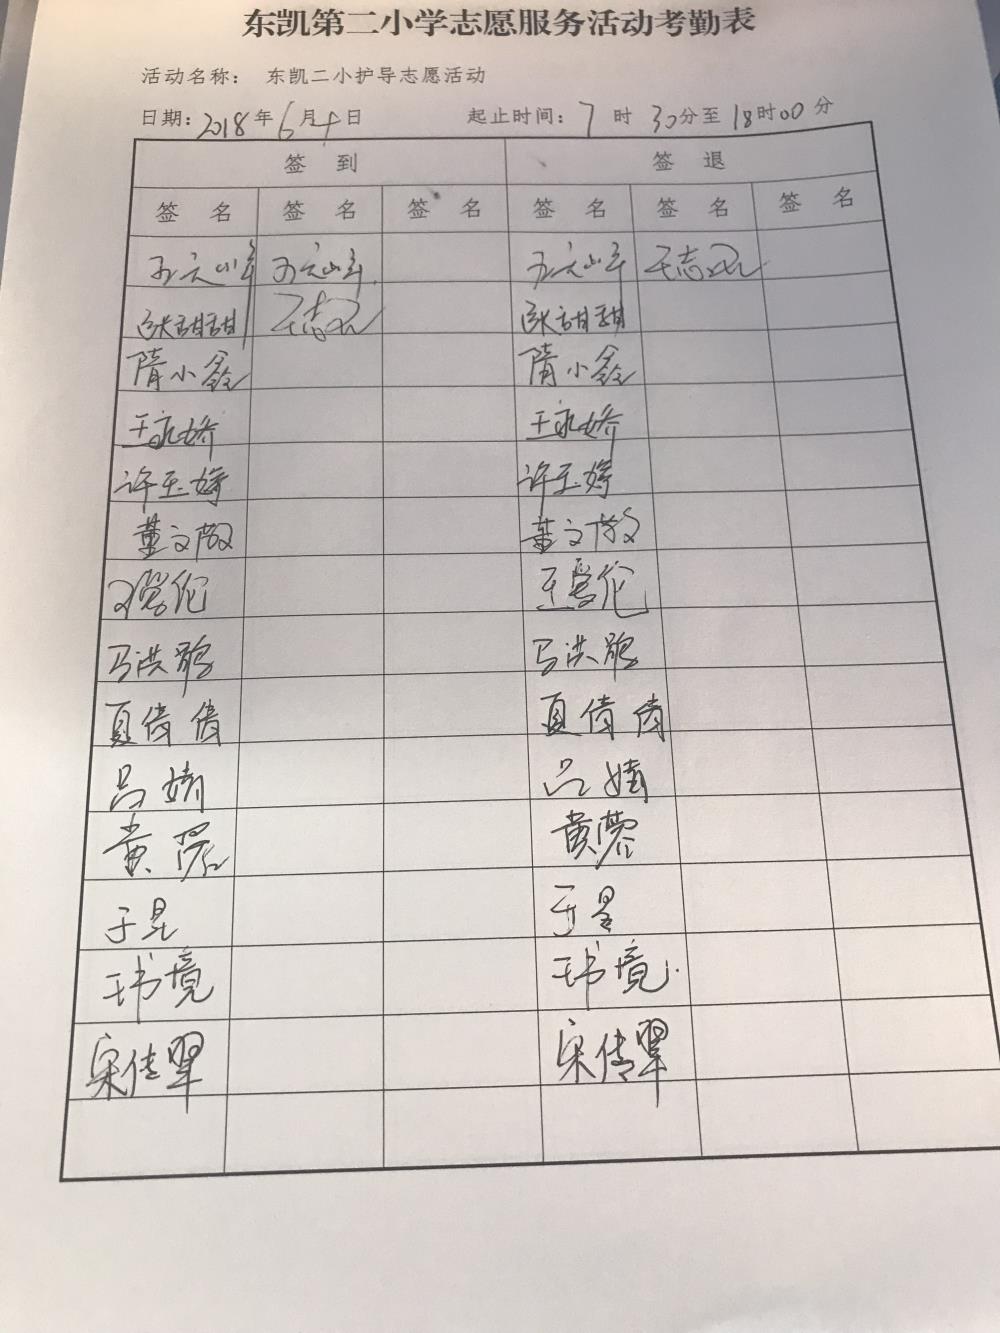 东凯第二小学志愿服务活动考勤表
活动名称： 东凯二小护导志愿活动
日期：2018年6月4日 起止时间：7时30分至18时00分
签 到 签 退
签 名 签 名 签 名 签 名 签 名 签 名
王志
张甜甜 王志 张甜甜
隋小鑫 隋小鑫
王永娇 王永娇
许玉婷 许玉婷
董文 董文
伦 王 伦
马洪 马洪
夏倩倩 夏倩倩
吕婧 吕婧
黄 黄
于昆 于昆
王书境 王书境
宋佳翠 宋佳翠